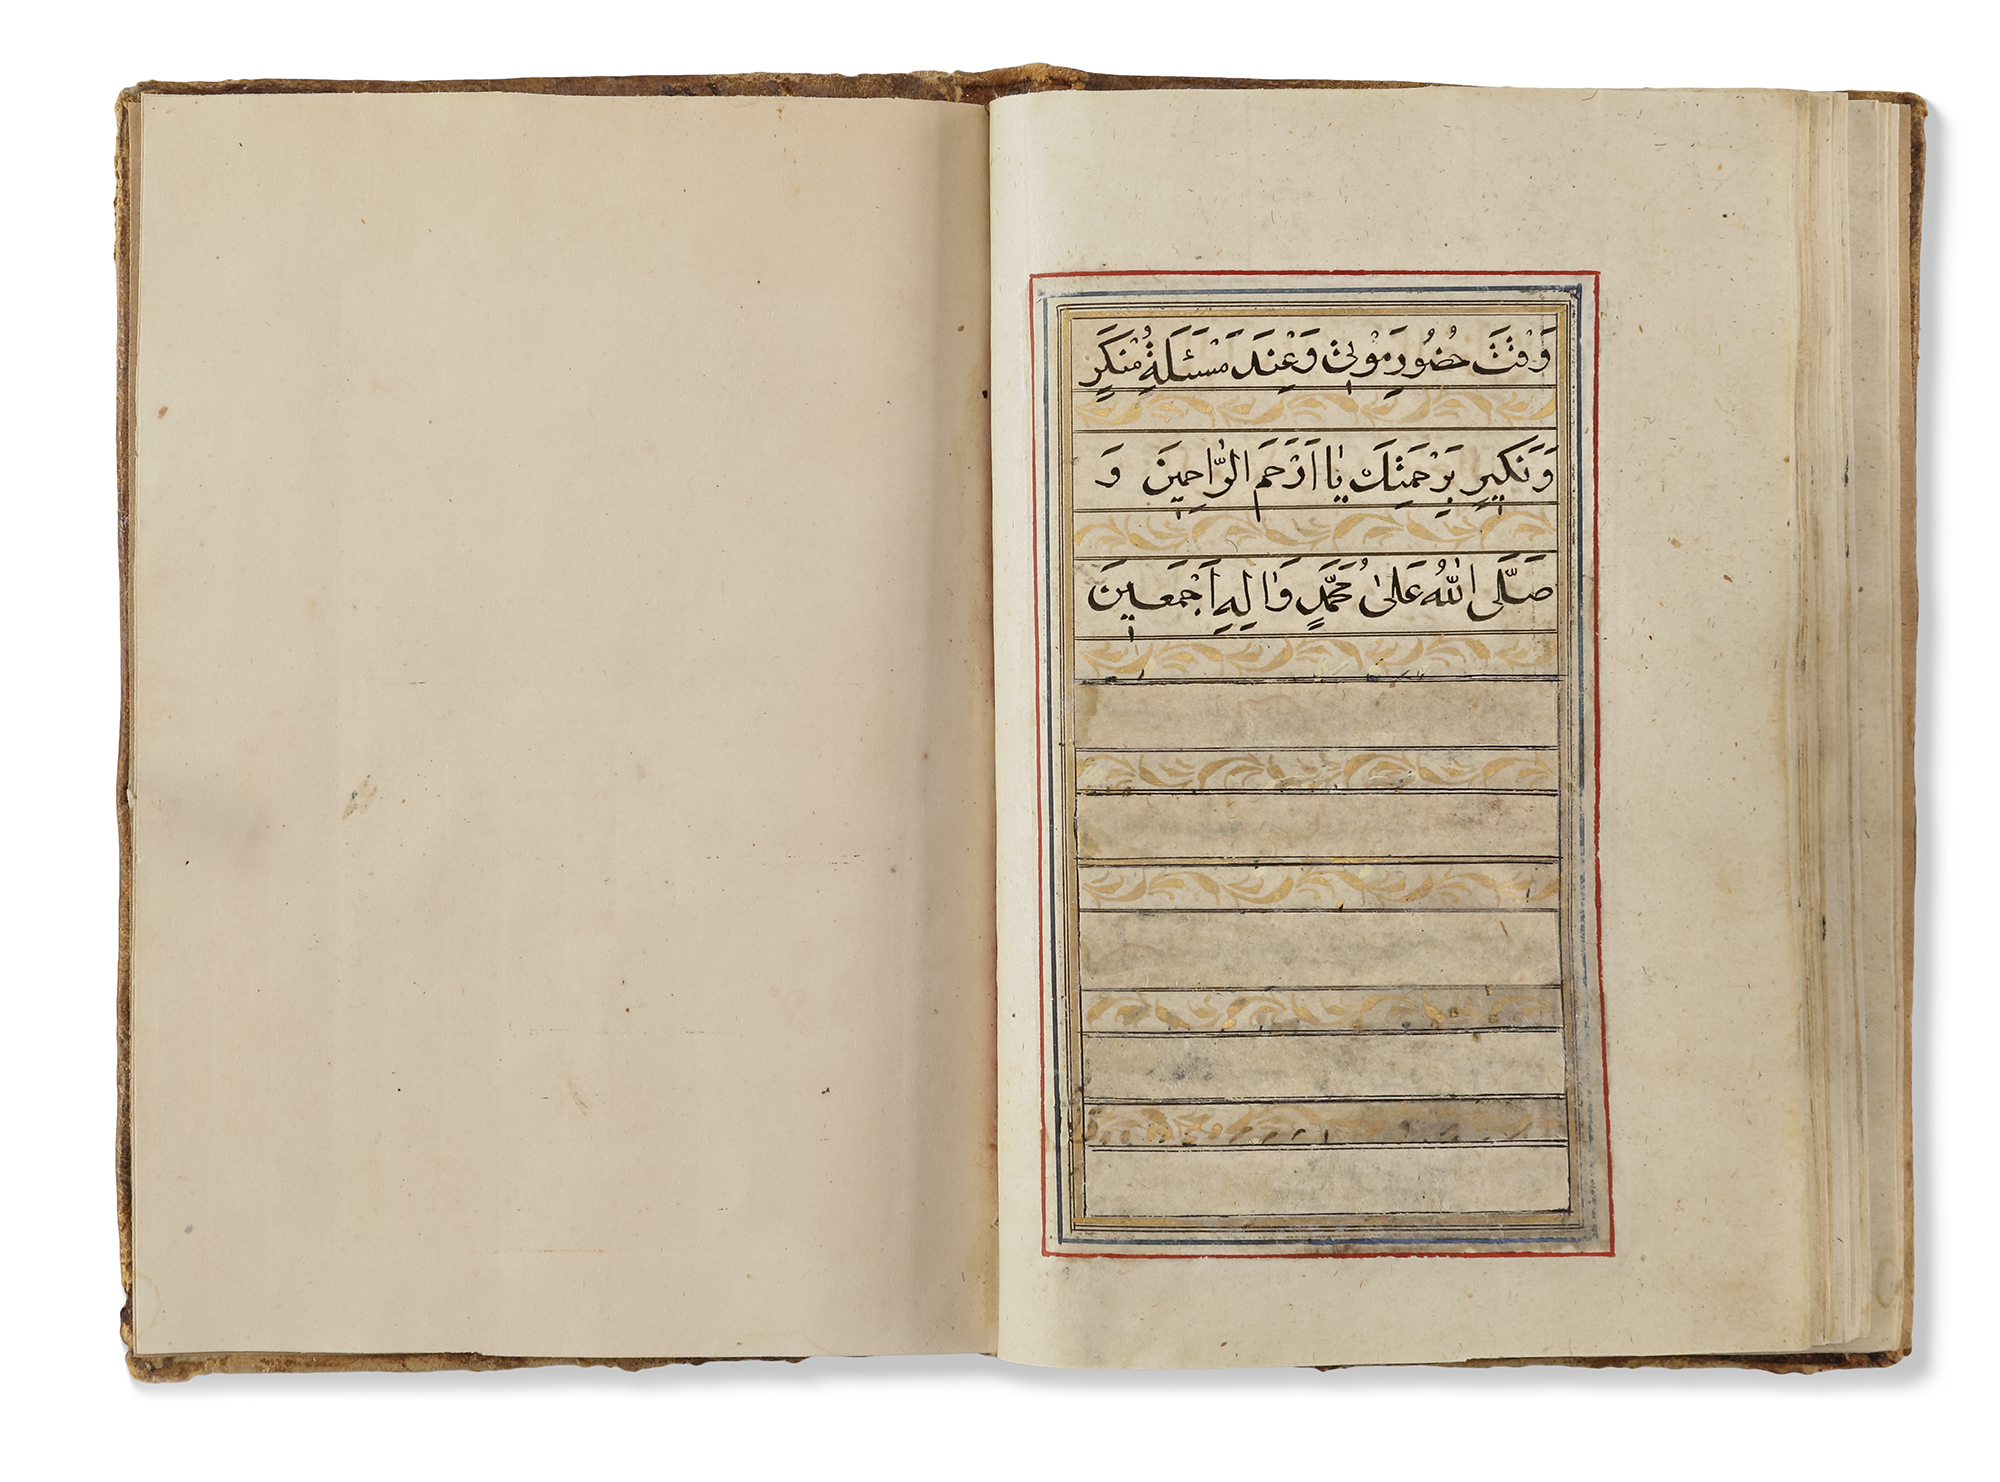 وَقْتَ حُضُورِ مَوْتِي وَعِنْدَ مَسْئَلَةِ مُنْكَرٍ
وَنَكِيرٍ بِرَحْمَتِكَ يَا اَرْحَمَ الرَّاحِمِينَ وَ
صَلَّى اللهُ عَلىٰ مُحَمَّدٍ وَاٰلِهِ اَجْمَعِينَ